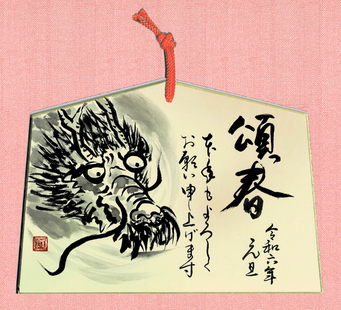 頌春
本年もよろしく
お願い申し上げます
令和六年
元旦